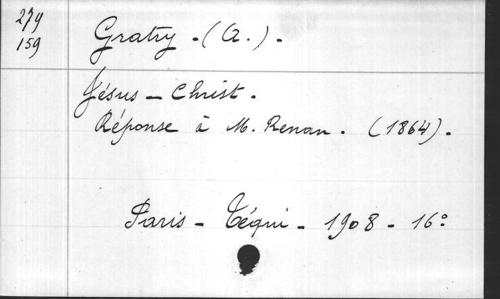 279
159
Gratry - (A.) -
Jésus - Christ.
Réponse à M. Renan. (1864).
Paris - Téqui - 1908 - 16°